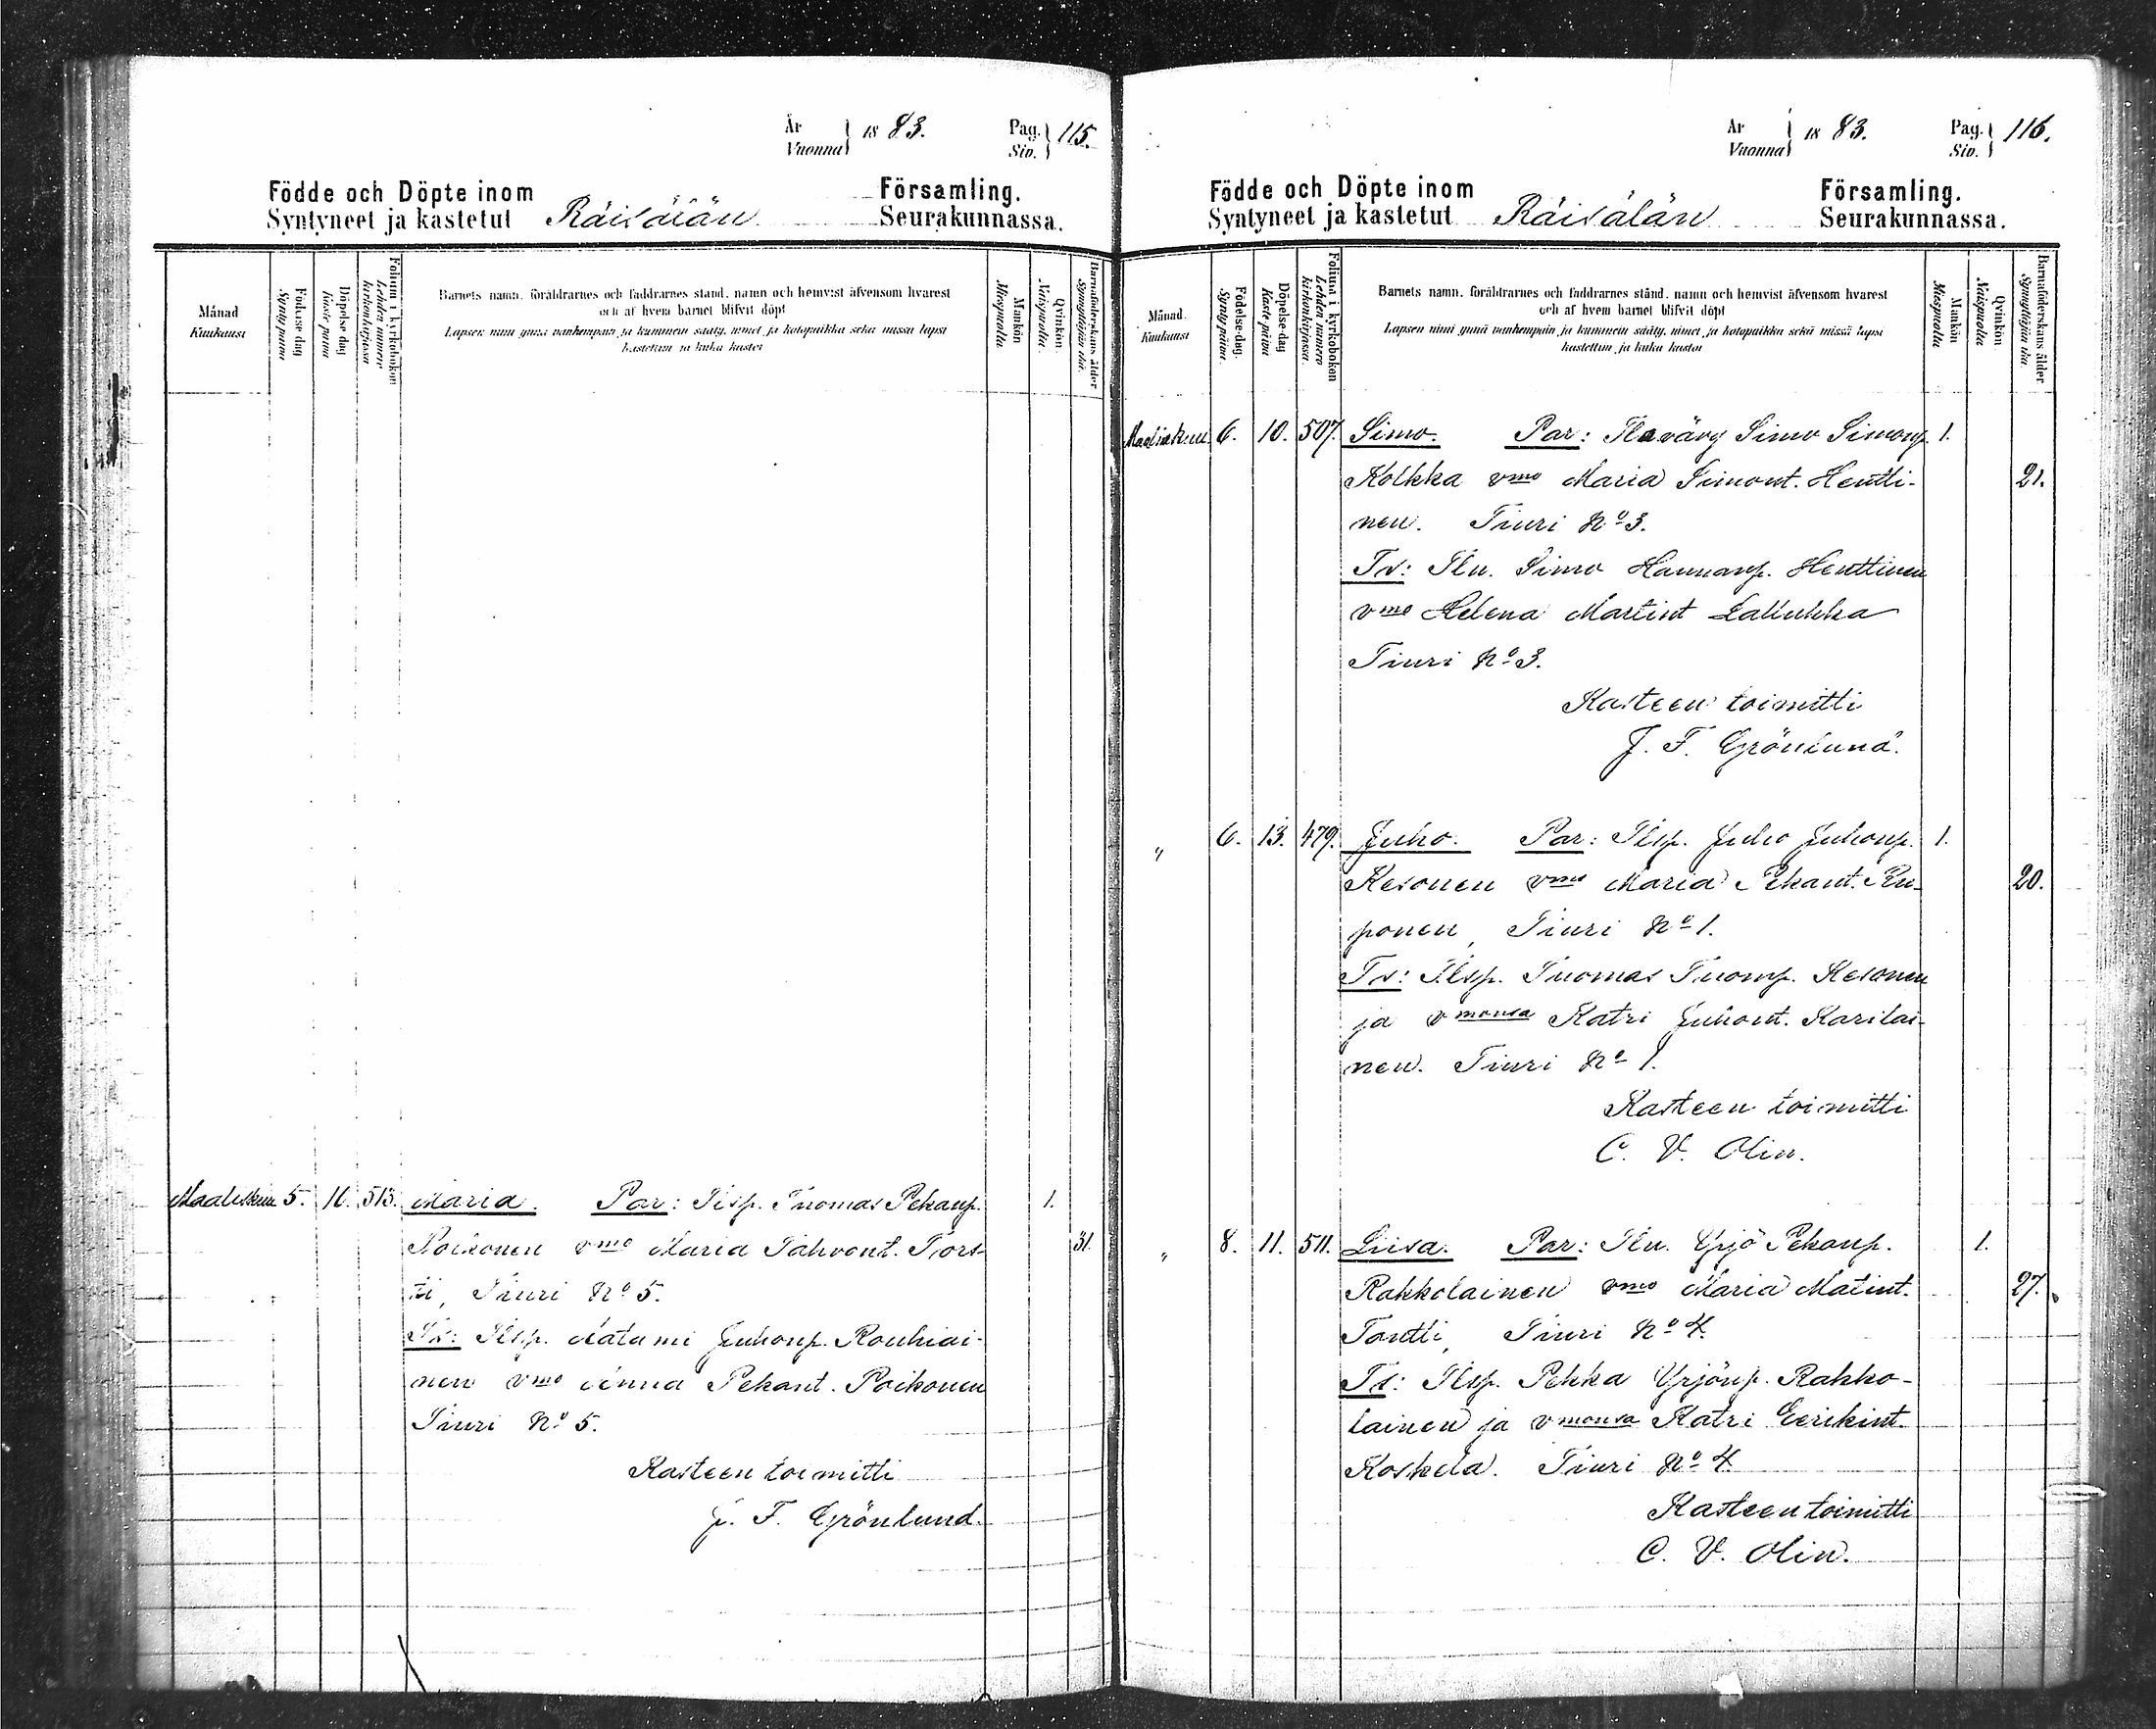 År
Vuonna 1883.
Pag.
Siv. 115.
Födde och Döpte inom Församling.
Syntyneet ja kastetut Räisälän Seurakunnassa.
Månad
Kuukausi
Födelse dag
Synty päivä
Döpelse dag
Kaste päivä
Folium i kyrkoboken
Lehden numero kirkonkirjassa
Barnets namn, föräldrarnes och faddrarnes stånd, namn och hemvist äfvensom hvarest
och af hvem barnet blifvit döpt
Lapsen nimi ynnä vanhempain ja kummein sääty, nimet ja kotopaikka sekä missä lapsi
kastettiin ja kuka kastoi
Mankön
Miespuolia
Qvinkön
Naispuolia.
Barnaföderskans ålder
Synnyttäjän ikä.
Maaliskuu 5. 11. 513. Maria. Par: Tlsp. Tuomas Pekanp. 1.
Poikonen vmo Maria Pahvont. Tors- 31
ti, Tiuri No 5.
Ts: Tlsp. Aatami Juhonp. Rouhiai-
nen vmo Anna Pekant. Poikonen
Tiuri No 5.
Kasteen toimitti
J. F. Grönlund.
År
Vuonna 1883.
Pag.
Siv. 116.
Födde och Döpte inom Församling.
Syntyneet ja kastetut Räisälän Seurakunnassa.
Månad.
Kuukausi
Födelse dag.
Synty päivä.
Döpelse dag
Kaste päivä
Folium i kyrkoboken
Lehden numero kirkonkirjassa.
Barnets namn, föräldrarnes och faddrarnes stånd, namn och hemvist äfvensom hvarest
och af hvem barnet blifvit döpt
Lapsen nimi ynnä vanhempain ja kummein sääty, nimet ja kotopaikka sekä missä lapsi
kastettiin ja kuka kastoi
Mankön
Miespuolia
Qvinkön
Naispuolia
Barnaföderskans ålder
Synnyttäjän ikä
Maaliskuu 6. 10. 507. Simo. Par: Simo Simonp. 1.
Kolkka vmo Maria Simont. Hentti- 21.
nen. Tiuri No 3.
Ts: Tln. Simo Hannanp. Henttinen
vmo Helena Martint Lallukka
Tiuri No 3.
Kasteen toimitti
J. F. Grönlund.
" 6. 13. 479. Juho. Par: Tlsp. Juho Juhonp. 1.
Kesonen vmo Maria Pekant. Ru- 20.
ponen, Tiuri No 1.
Ts: Tlsp. Tuomas Tuomp. Kesonen
ja vmonsa Katri Juhont. Karilai-
nen. Tiuri No 1.
Kasteen toimitti
C. V. Olin.
" 8. 11. 511. Liisa. Par: Tln. Yrjö Pekanp. 1.
Rakkolainen vmo Maria Matint. 27.
Tontti, Tiuri No 4.
Ts: Tlsp. Pekka Yrjönp. Rakko-
lainen ja vmonsa Katri Eerikint.
Koskela. Tiuri No 4.
Kasteen toimitti
C. V. Olin.